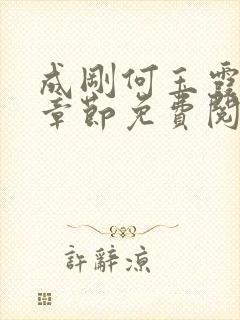 成剛何玉霞
章節免費閱
許辭涼